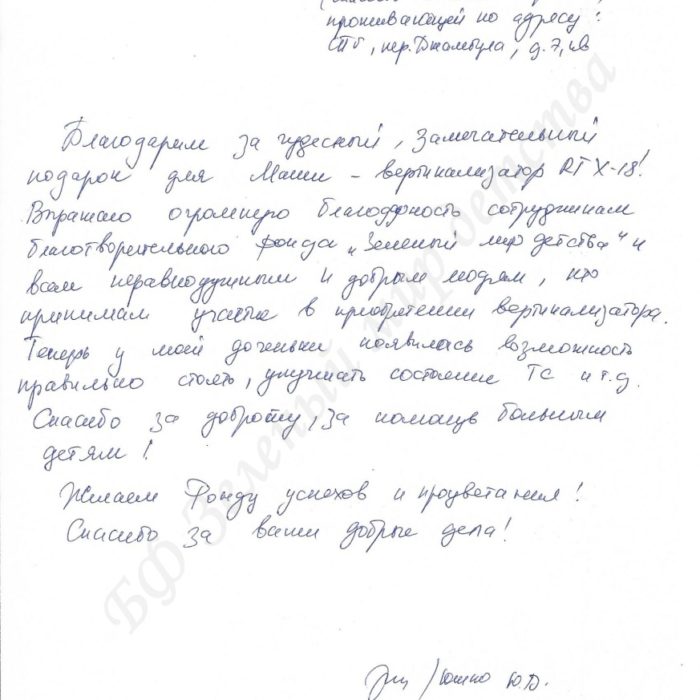 проживающей по адресу:
СПб, пер. Джамбула, д. 7, кв
Благодарим за чудесный, замечательный
подарок для Маши – вертикализатор RT X-18!
Выражаю огромную благодарность сотрудникам
благотворительного фонда „Зеленый мир детства" и
всем неравнодушным и добрым людям, кто
принимал участие в приобретении вертикализатора.
Теперь у моей доченьки появилась возможность
правильно стоять, улучшать состояние ТС и т.д.
Спасибо за доброту, за помощь больным
детям!
Желаем Фонду успехов и процветания!
Спасибо за ваши добрые дела!
Ю.О.
БФ Зеленый мир детства